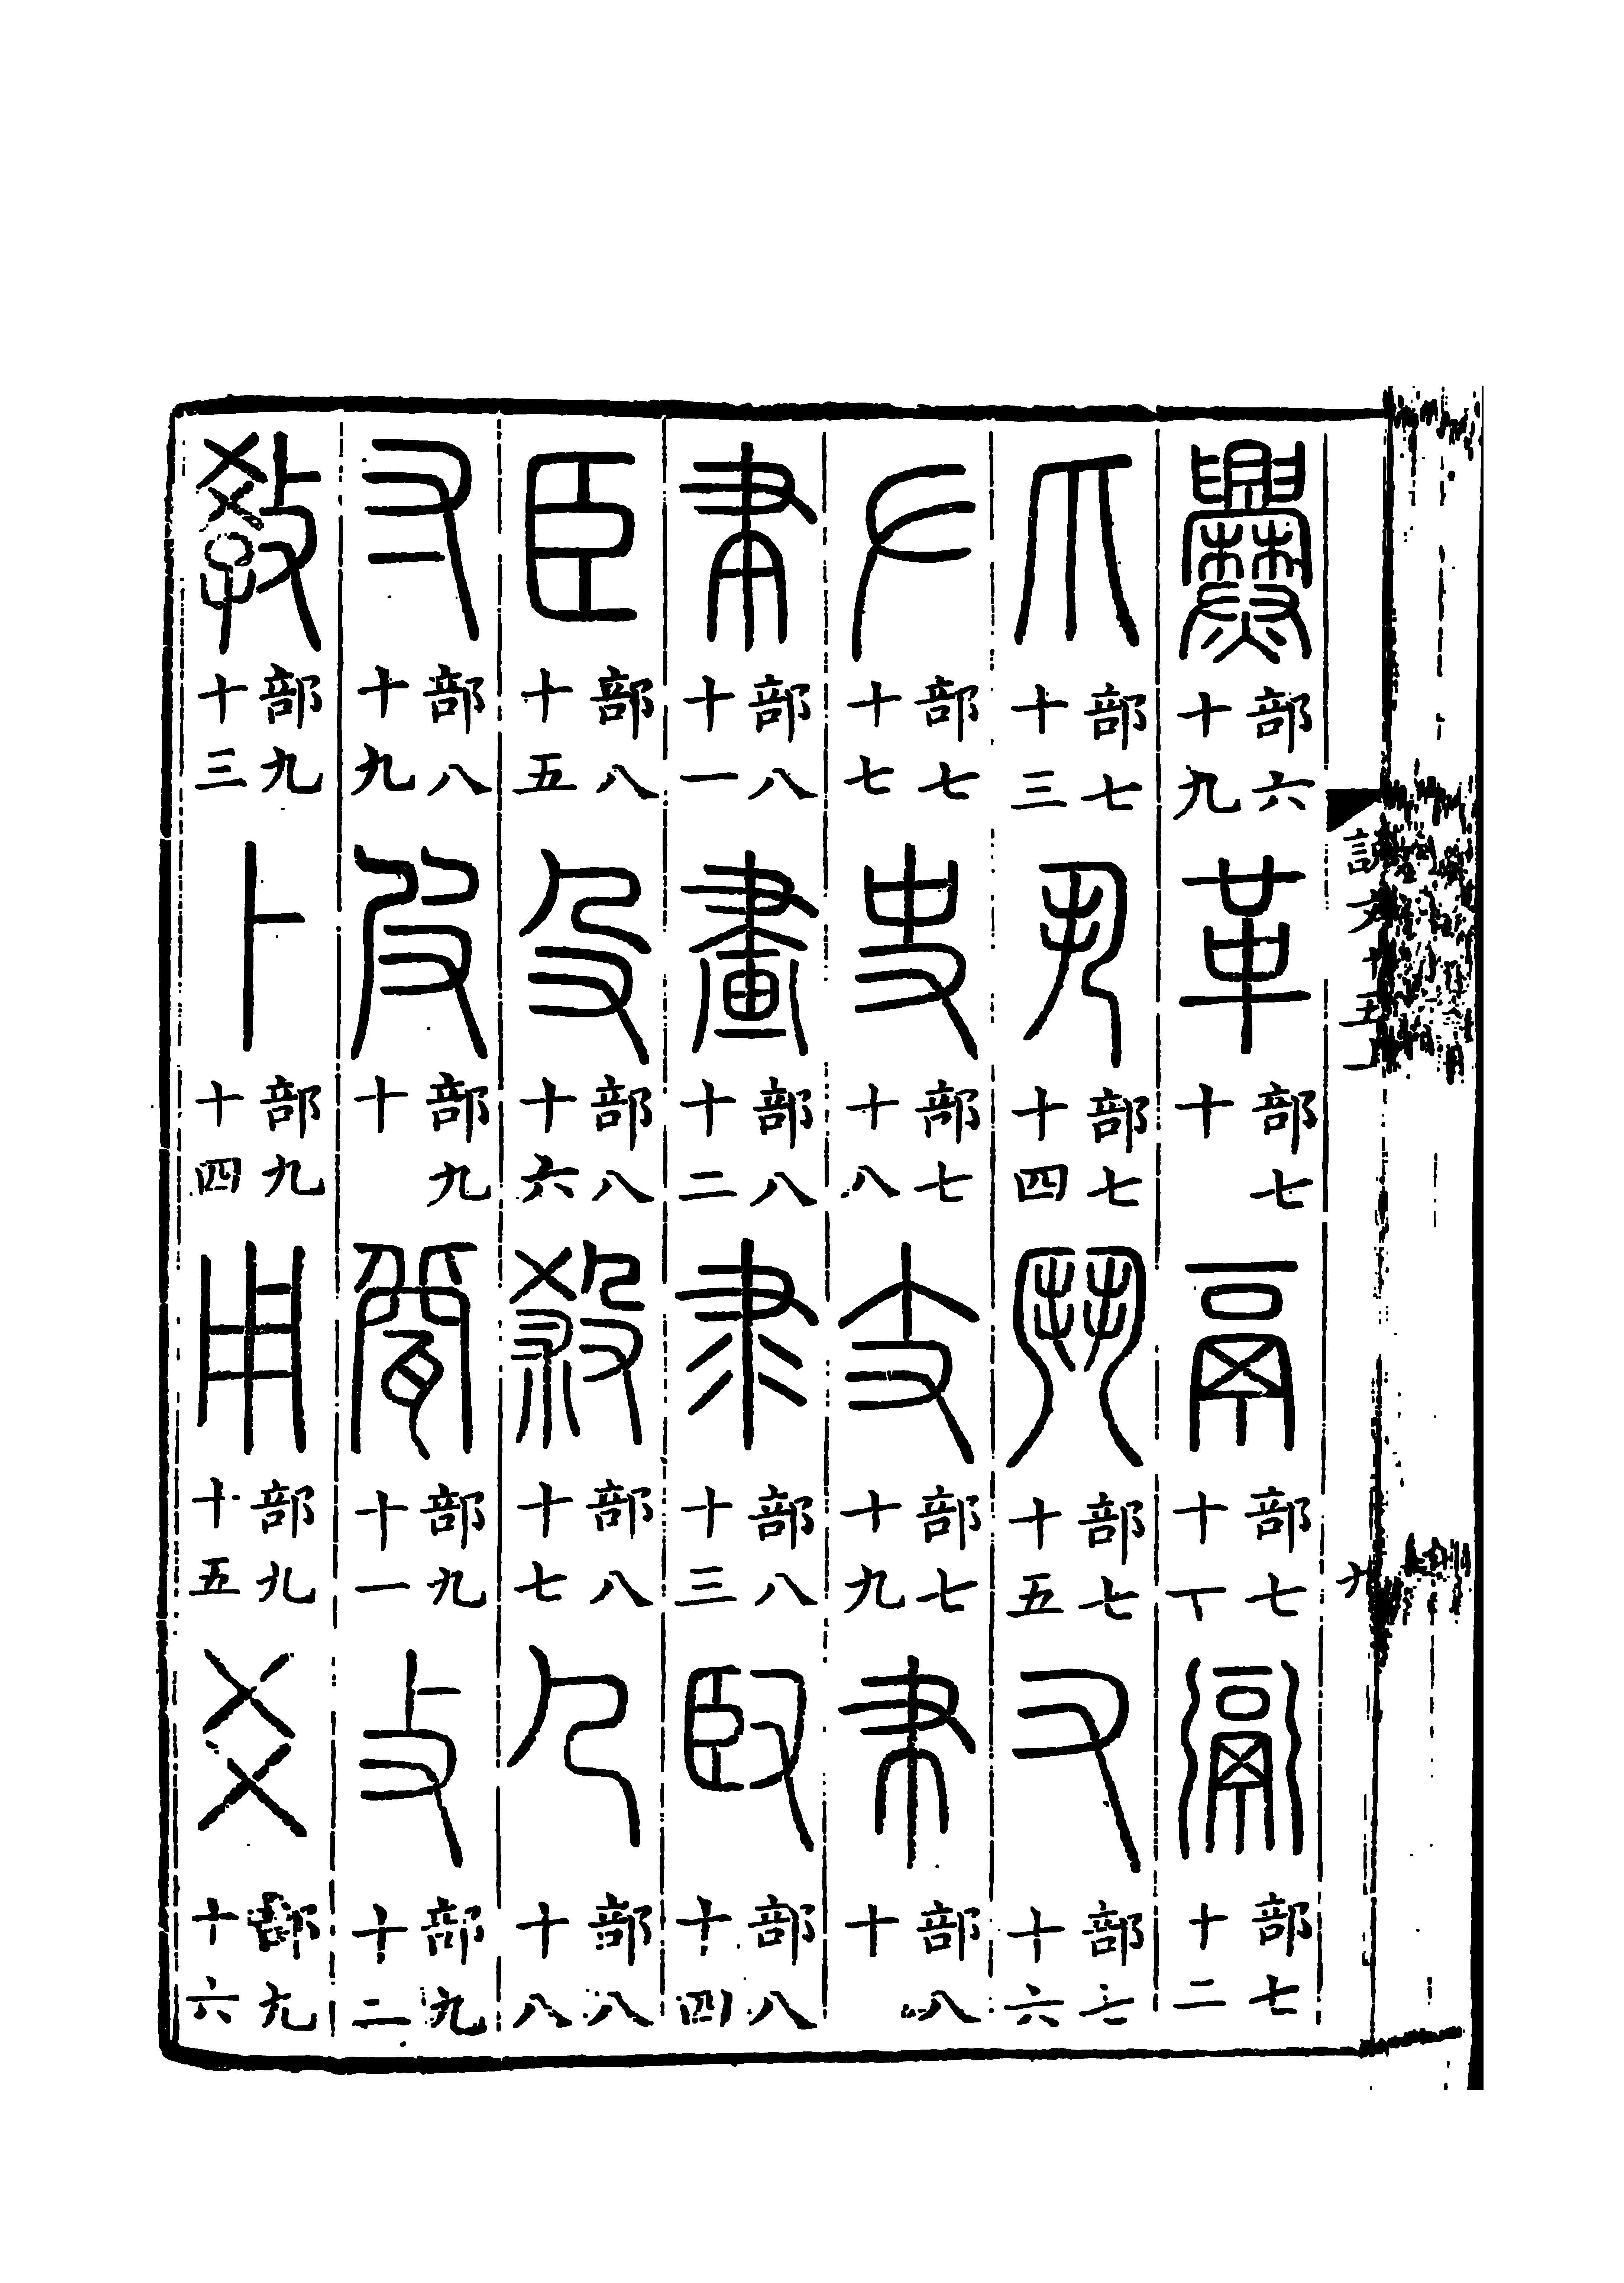 說文十五上 九
爨部六十九 革部七十 鬲部七十一 䰜部七十二
爪部七十三 丮部七十四 鬥部七十五 又部七十六
𠂇部七十七 史部七十八 支部七十九 𦘒部八十
聿部八十一 畫部八十二 隶部八十三 臤部八十四
臣部八十五 殳部八十六 殺部八十七 𠘧部八十八
寸部八十九 皮部九十 㼱部九十一 攴部九十二
教部九十三 卜部九十四 用部九十五 爻部九十六